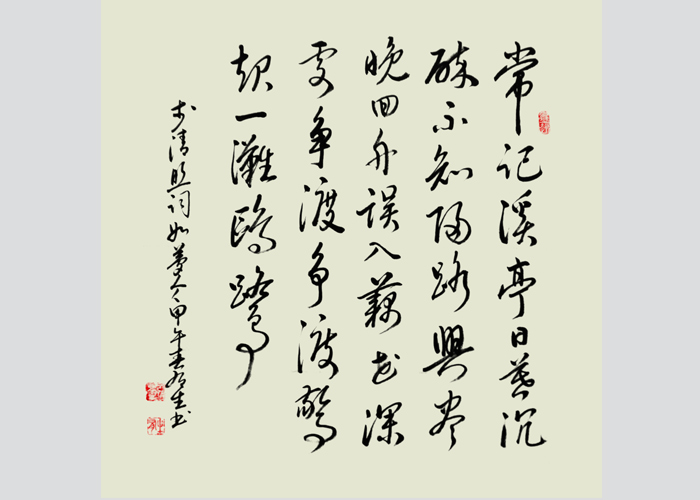 常记溪亭日暮沉
醉不知归路興尽
晚回舟误入藕花深
處争渡争渡驚
起一灘鸥鹭
李清照词如梦令甲午春生书